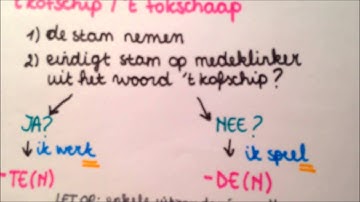 't kofschip / 't fokschaap
1) de stam nemen
2) eindigt stam op medeklinker
uit het woord 't kofschip?
JA? NEE?
↓ ik werk ↓ ik speel
-TE(N) -DE(N)
LET OP: